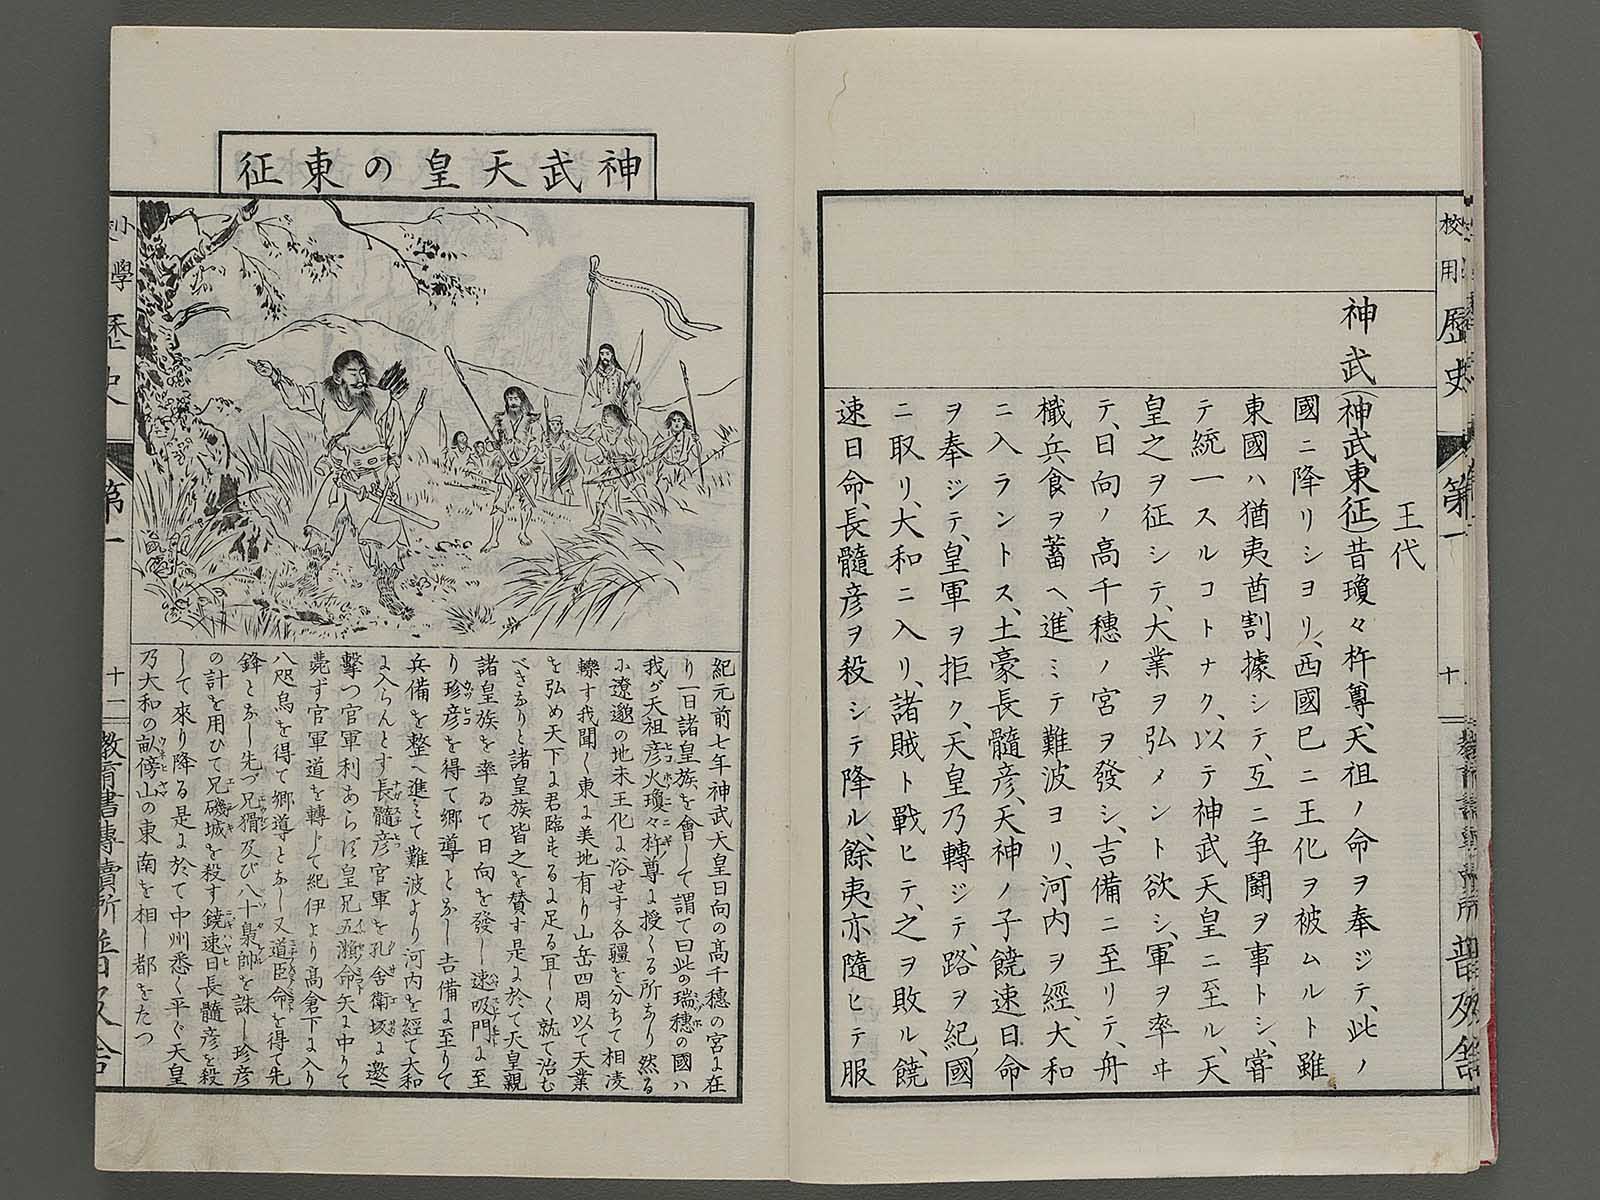 校用歴史
第一
普及舍
王代
神武
神武東征、昔瓊々杵尊、天祖ノ命ヲ奉ジテ、此ノ
國ニ降リシヨリ、西國已ニ王化ヲ被ムルト雖
東國ハ猶夷酋割據シテ、互ニ爭鬪ヲ事トシ、嘗
テ統一スルコトナク、以テ神武天皇ニ至ル、天
皇之ヲ征シテ、大業ヲ弘メント欲シ、軍ヲ率ヰ
テ、日向ノ高千穗ノ宮ヲ發シ、吉備ニ至リテ、舟
檝兵食ヲ蓄ヘ、進ミテ難波ヨリ、河内ヲ經、大和
ニ入ラントス、土豪長髓彦、天神ノ子饒速日命
ヲ奉ジテ、皇軍ヲ拒ク、天皇乃轉ジテ、路ヲ紀國
ニ取リ、大和ニ入リ、諸賊ト戰ヒテ、之ヲ敗ル、饒
速日命、長髓彦ヲ殺シテ降ル、餘夷亦隨ヒテ服
神武天皇の東征
紀元前七年神武天皇日向の高千穗の宮よ在
り一日諸皇族を會して謂て曰此の瑞穗の國ハ
我が天祖彦火瓊々杵尊よ授くる所なり然る
に遼邈の地未王化よ浴せす各疆を分ちて相凌
轢す我聞く東よ美地有り山岳四周以て天業
を弘め天下よ君臨もるよ足る宜しく就て治む
べきなりと諸皇族皆之を賛す是よ於て天皇親
諸皇族を率ゐて日向を發し速吸門よ至
り珍彦を得て郷導となし吉備よ至りて
兵備を整へ進みて難波より河内を經て大和
よ入らんとす長髓彦官軍を孔舍衛坂よ邀
撃つ官軍利あらず皇兄五瀬命矢よ中りて
薨ず官軍道を轉じて紀伊より高倉下よ入り
八咫烏を得て郷導となし又道臣命を得て先
鋒となし先づ兄猾及び八十梟帥を誅し珍彦
の計を用ひて兄磯城を殺す饒速日長髓彦を殺
して來り降る是よ於て中州悉く平ぐ天皇
乃大和の畝傍山の東南を相し都をたつ
小學歴史
第一
十二
教育書專賣所
普及舍